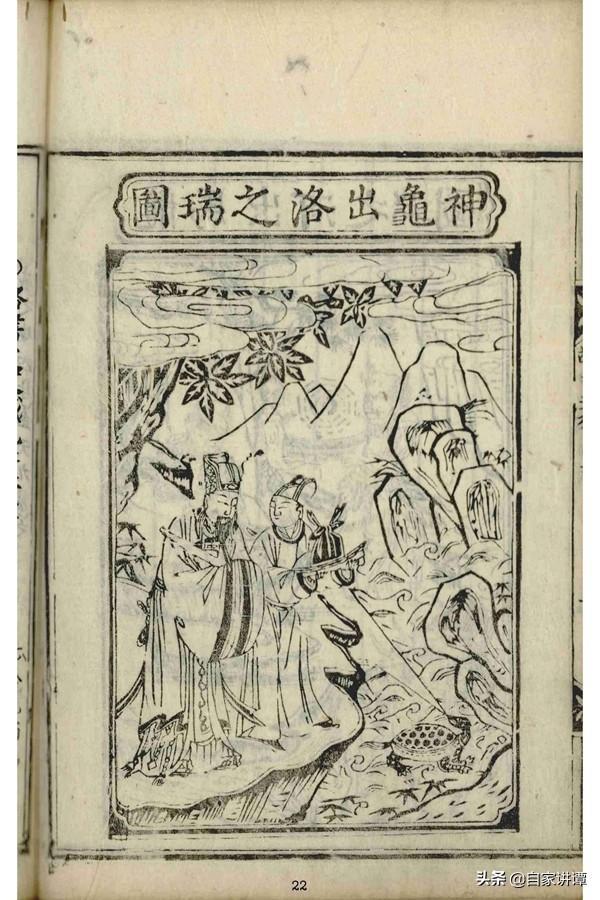 神龜出洛之瑞圖
22
头条 @自家讲谭